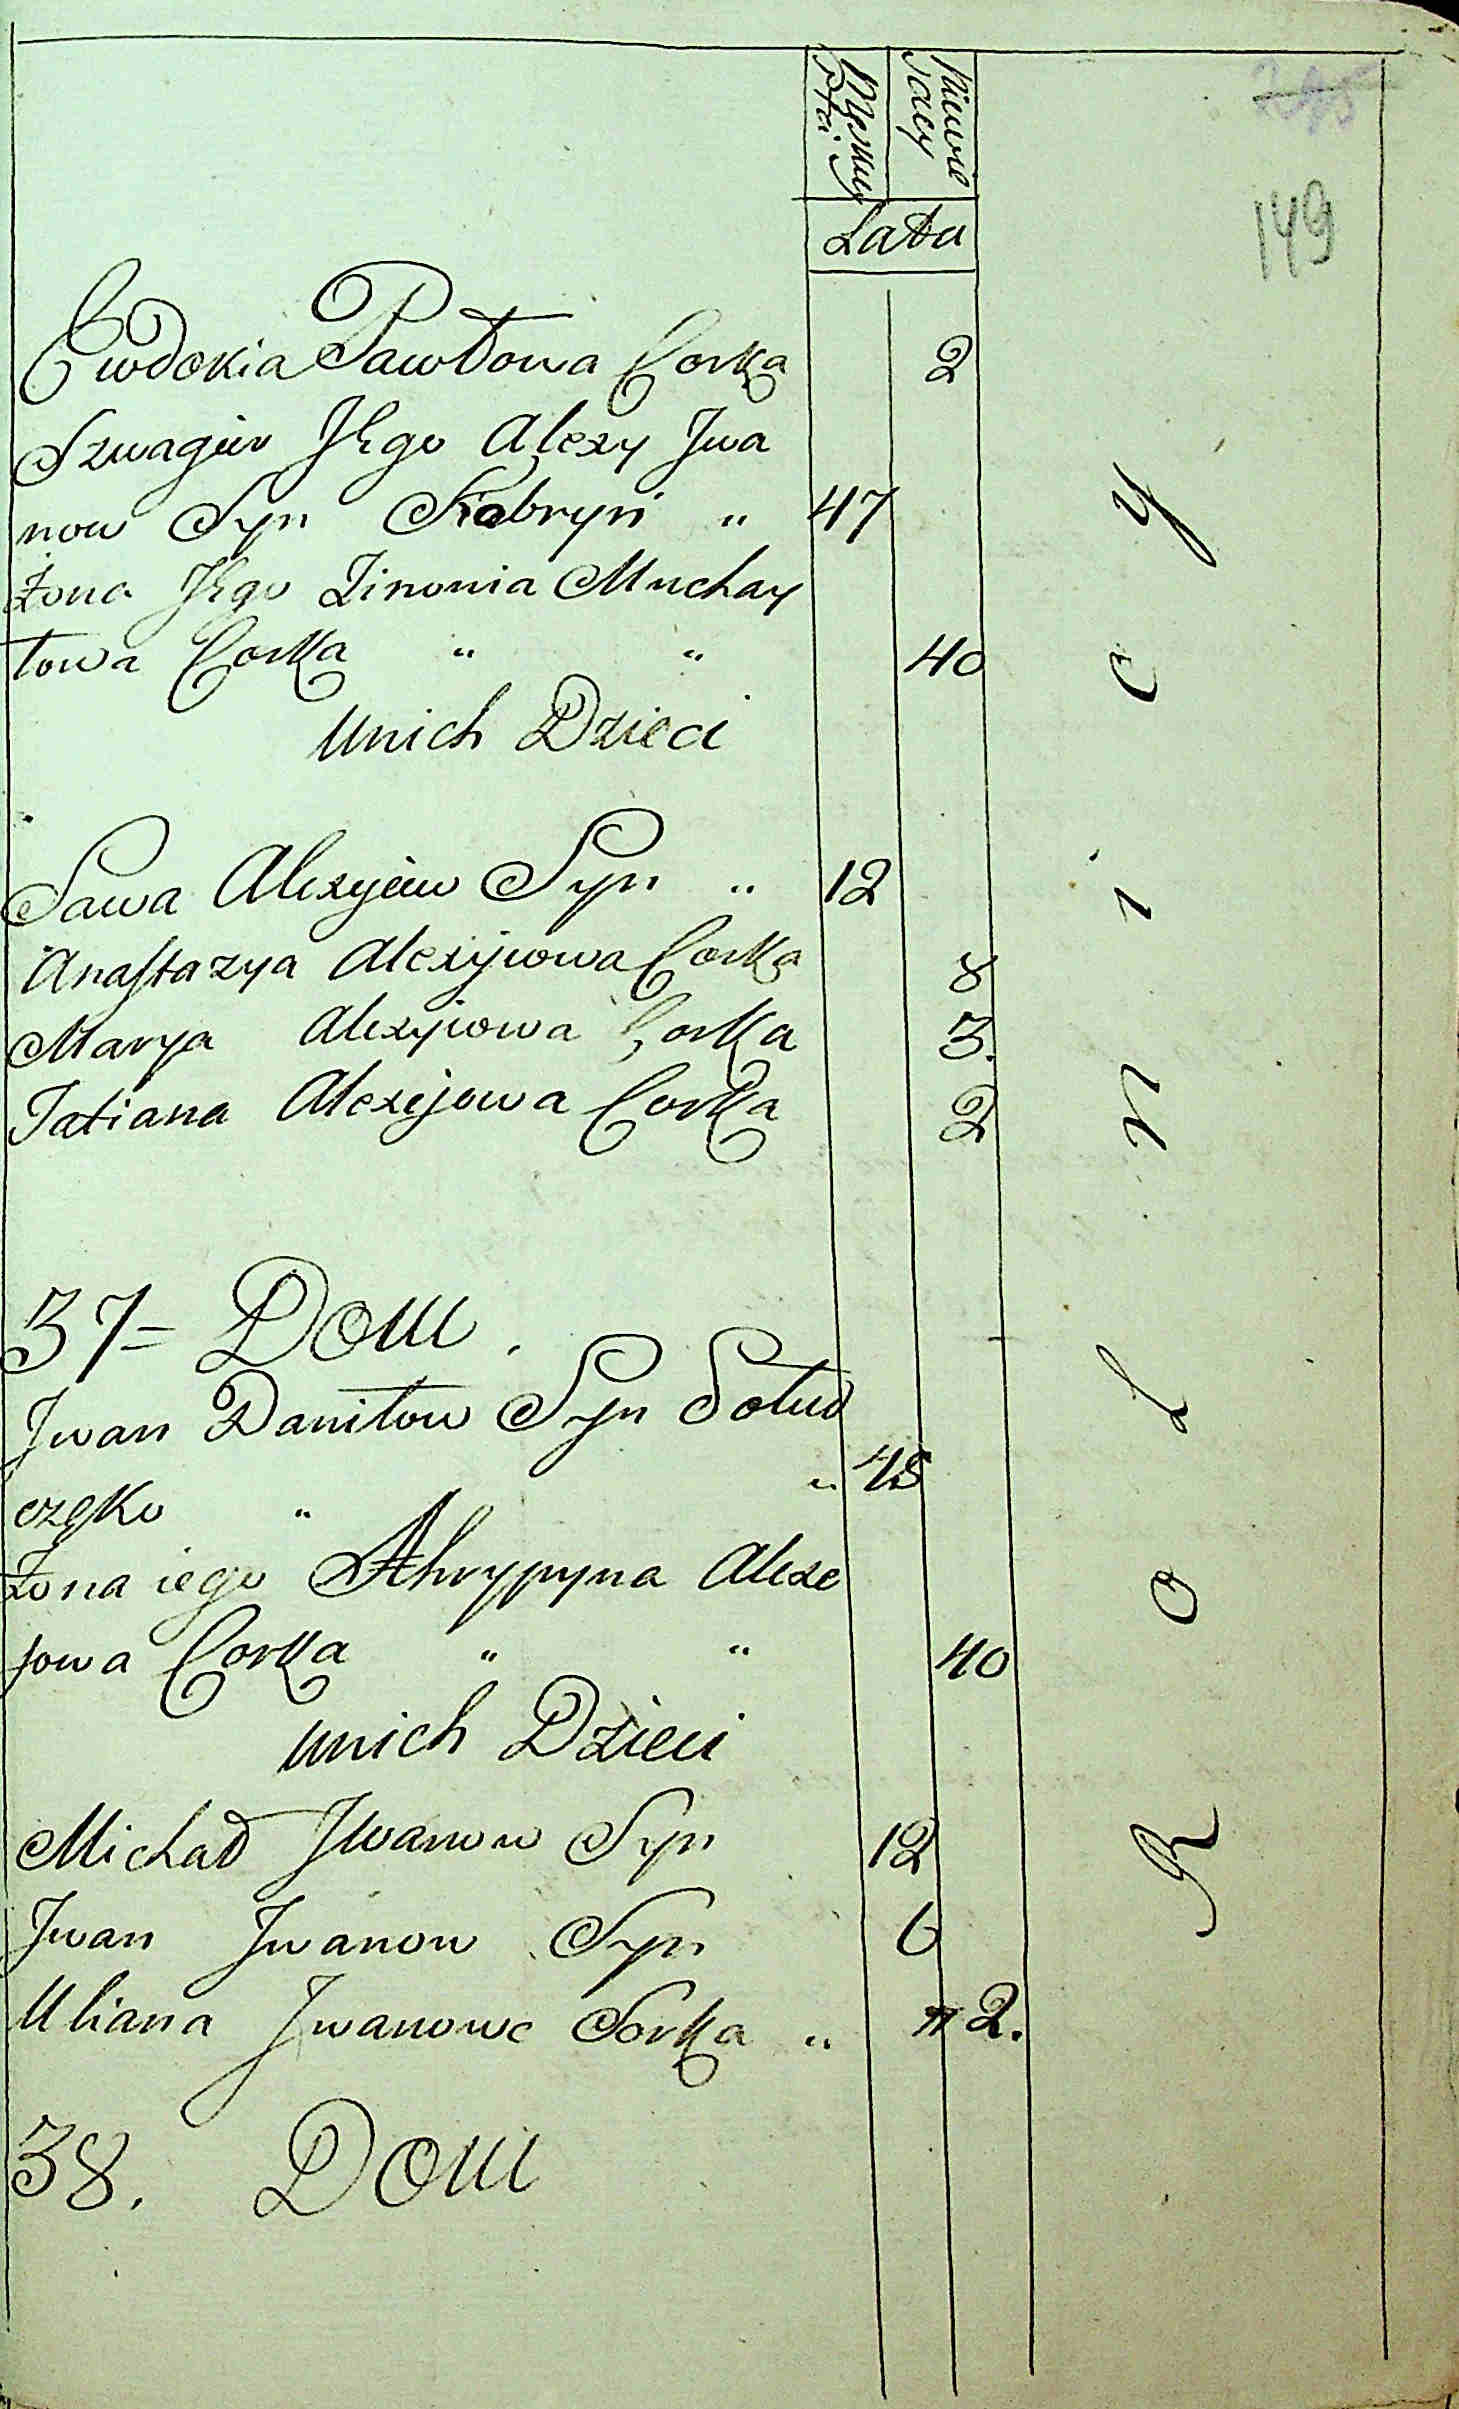 Męskiey Płci
Niewie sciey
Lata
149
Ewdokia Pawłowa Corka 2
Szwagier Jego Alexy Jwa
now Syn Kobryń " 47
Żona Jego Zinowia Muchay
łowa Corka " " 40
Unich Dzieci
Sawa Alexyiew Syn " 12
Anastazya Alexyiowa Corka 8
Marya Alexyiowa Corka 3.
Tatiana Alexyjowa Corka 2
37= Dom.
Jwan Daniłow Syn Sołud
częko " " 48
Żona iego Ahrypyna Alexe
jowa Corka " " 40
Unich Dzieci
Michał Jwanow Syn 12
Jwan Jwanow Syn 6
Uliana Jwanowa Corka " " 2.
38. Dom
Rolnicy